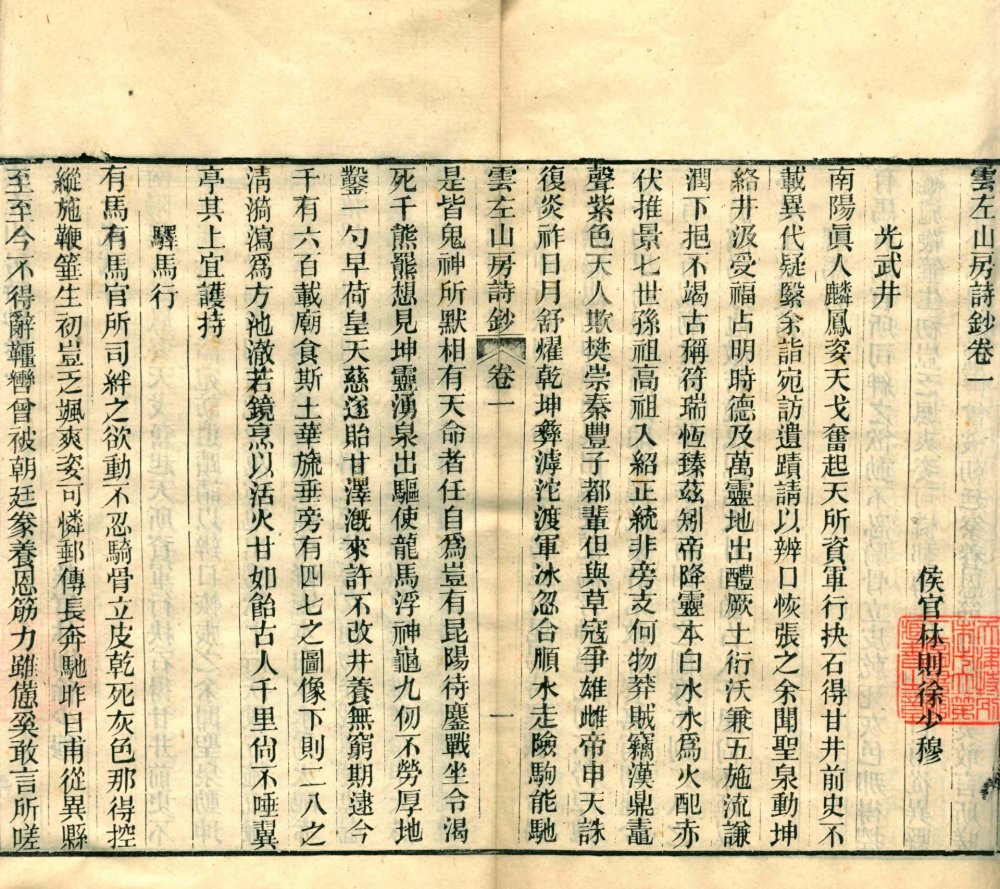 雲左山房詩鈔卷一
侯官林則徐少穆
光武井
南陽眞人麟鳳姿天戈奮起天所資軍行抉石得甘井前史不
載異代疑緊余詣宛訪遺蹟請以辨口恢張之余聞聖泉動坤
絡井汲受福占明時德及萬靈地出醴厥土衍沃兼五施流謙
潤下挹不竭古稱符瑞恆臻茲矧帝降靈本白水水爲火配赤
伏推景七世孫祖高祖入紹正統非旁支何物莽賊竊漢鼎鼃
聲紫色天人欺樊崇秦豐子都輩但與草寇爭雄雌帝申天誅
復炎祚日月舒燿乾坤彝滹沱渡軍冰忽合順水走險駒能馳
雲左山房詩鈔 卷一 一
是皆鬼神所默相有天命者任自爲豈有昆陽待鏖戰坐令渴
死千熊羆想見坤靈湧泉出驅使龍馬浮神龜九仞不勞厚地
鑿一勺早荷皇天慈遂貽甘澤漑來許不改井養無窮期逮今
千有六百載廟食斯土華旒垂旁有四七之圖像下則二八之
淸漪瀉爲方池澈若鏡烹以活火甘如飴古人千里尙不唾冀
亭其上宜護持
驛馬行
有馬有馬官所司絆之欲動不忍騎骨立皮乾死灰色那得控
縱施鞭箠生初豈乏颯爽姿可憐郵傳長奔馳昨日甫從異縣
至至今不得辭韁轡曾被朝廷豢養恩筋力雖憊奚敢言所嗟